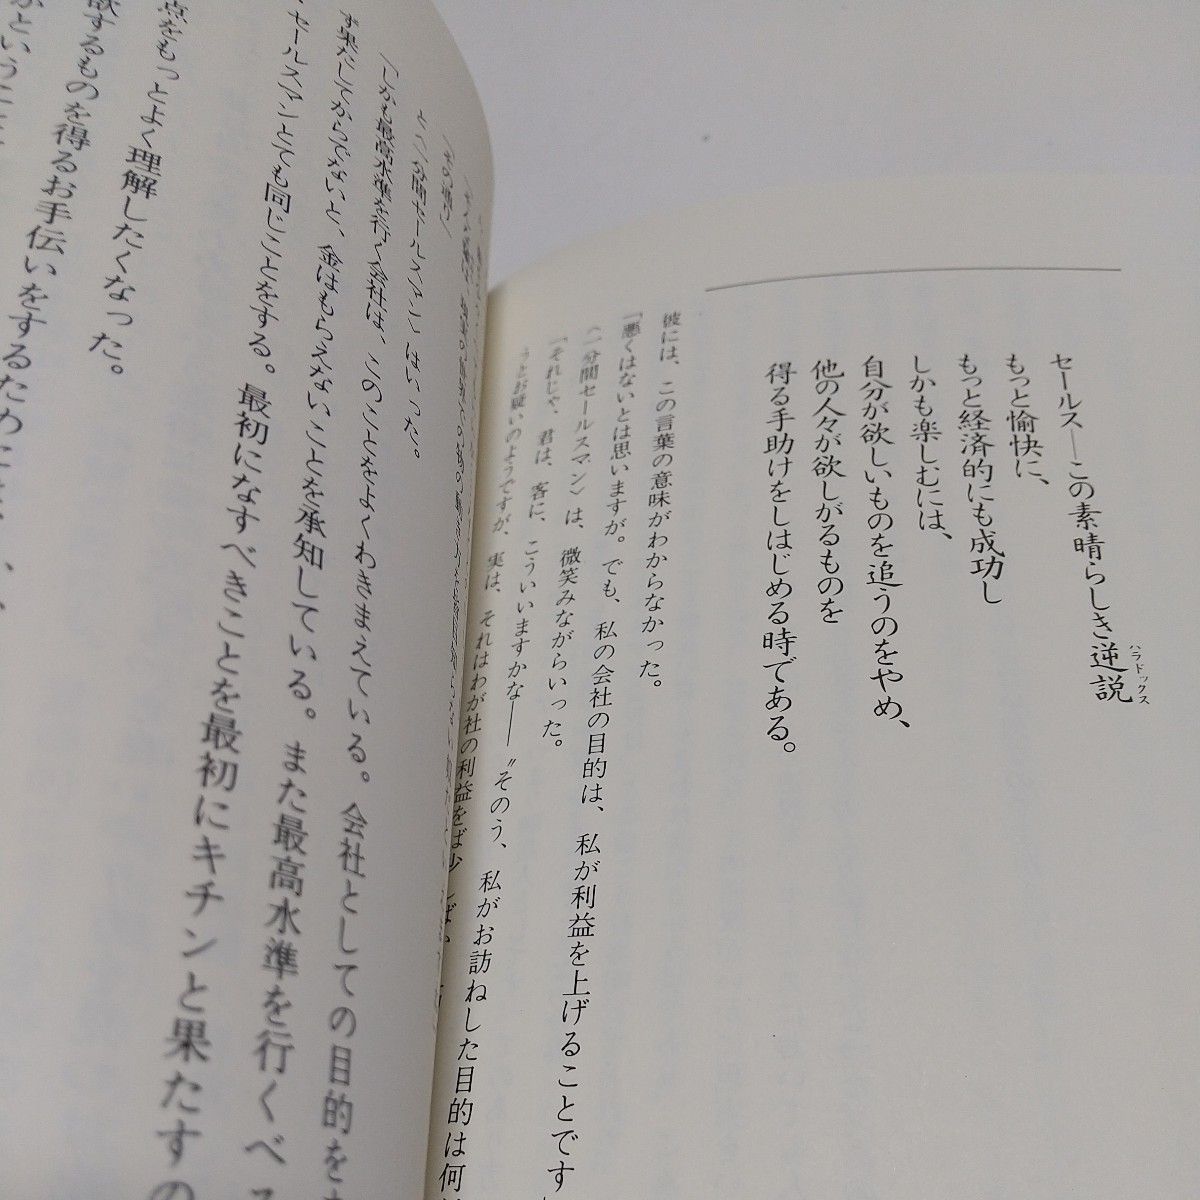 セールス―この素晴らしき逆説
パラドックス
もっと愉快に、
もっと経済的にも成功し
しかも楽しむには、
自分が欲しいものを追うのをやめ、
他の人々が欲しがるものを
得る手助けをしはじめる時である。
彼には、この言葉の意味がわからなかった。
「悪くはないとは思いますが。でも、私の会社の目的は、私が利益を上げることです
〈一分間セールスマン〉は、微笑みながらいった。
「それじゃ、君は、客に、こういいますかな――〝そのう、私がお訪ねした目的は何
うとお疑いのようですが、実は、それはわが社の利益をば少しばか
「その通り」
と〈一分間セールスマン〉はいった。
「しかも最高水準を行く会社は、このことをよくわきまえている。会社としての目的を
ず果たしてからでないと、金はもらえないことを承知している。また最高水準を行くべ
セールスマンとても同じことをする。最初になすべきことを最初にキチンと果たすの
点をもっとよく理解したくなった。
欲するものを得るお手伝いをするために